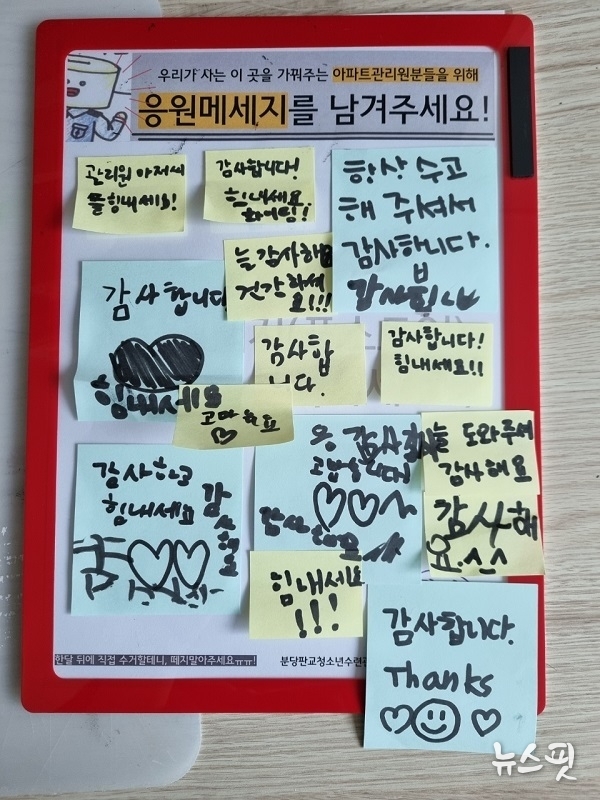 우리가 사는 이 곳을 가꿔주는 아파트관리원분들을 위해
응원메세지를 남겨주세요!
관리원 아저씨
들 힘내세요!
감사합니다!
힘내세요.
화이팅!!
항상 수고
해 주셔서
감사합니다.
늘 감사해요
건강하세
요!!!
감사합니다
힘내세요
감사합
니다.
감사합니다!
힘내세요!!
고마워요
감사하고
힘내세요
감사해요
감사해요
도와주셔
감사해요
감사해
요.^^
힘내세요
!!!
감사합니다.
Thanks
한달 뒤에 직접 수거할테니, 떼지말아주세요ㅠㅠ!
분당판교청소년수련관
뉴스핏